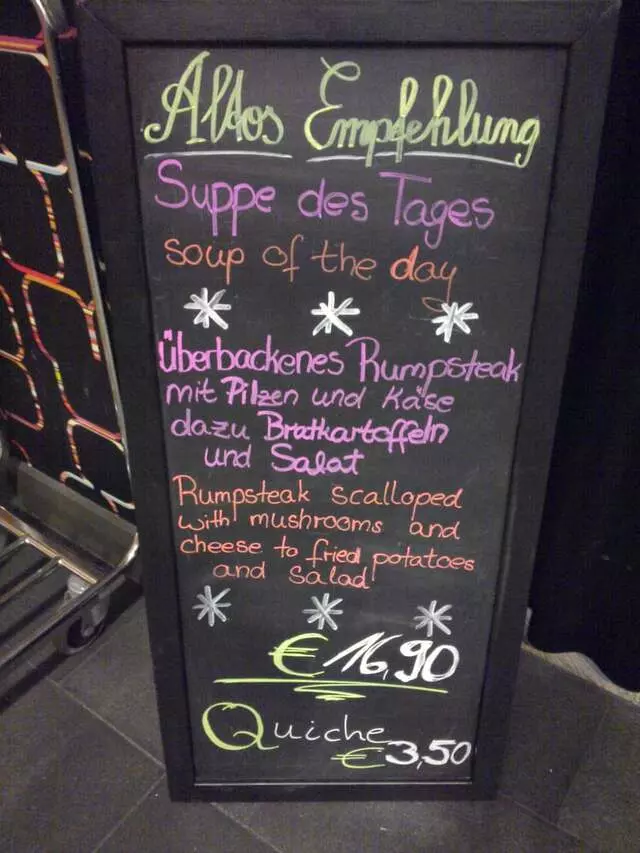 Altos Empfehlung
Suppe des Tages
soup of the day
Überbackenes Rumpsteak
mit Pilzen und Käse
dazu Bratkartoffeln
und Salat
Rumpsteak scalloped
with mushrooms and
cheese to fried potatoes
and salad
€ 16,90
Quiche
€ 3,50